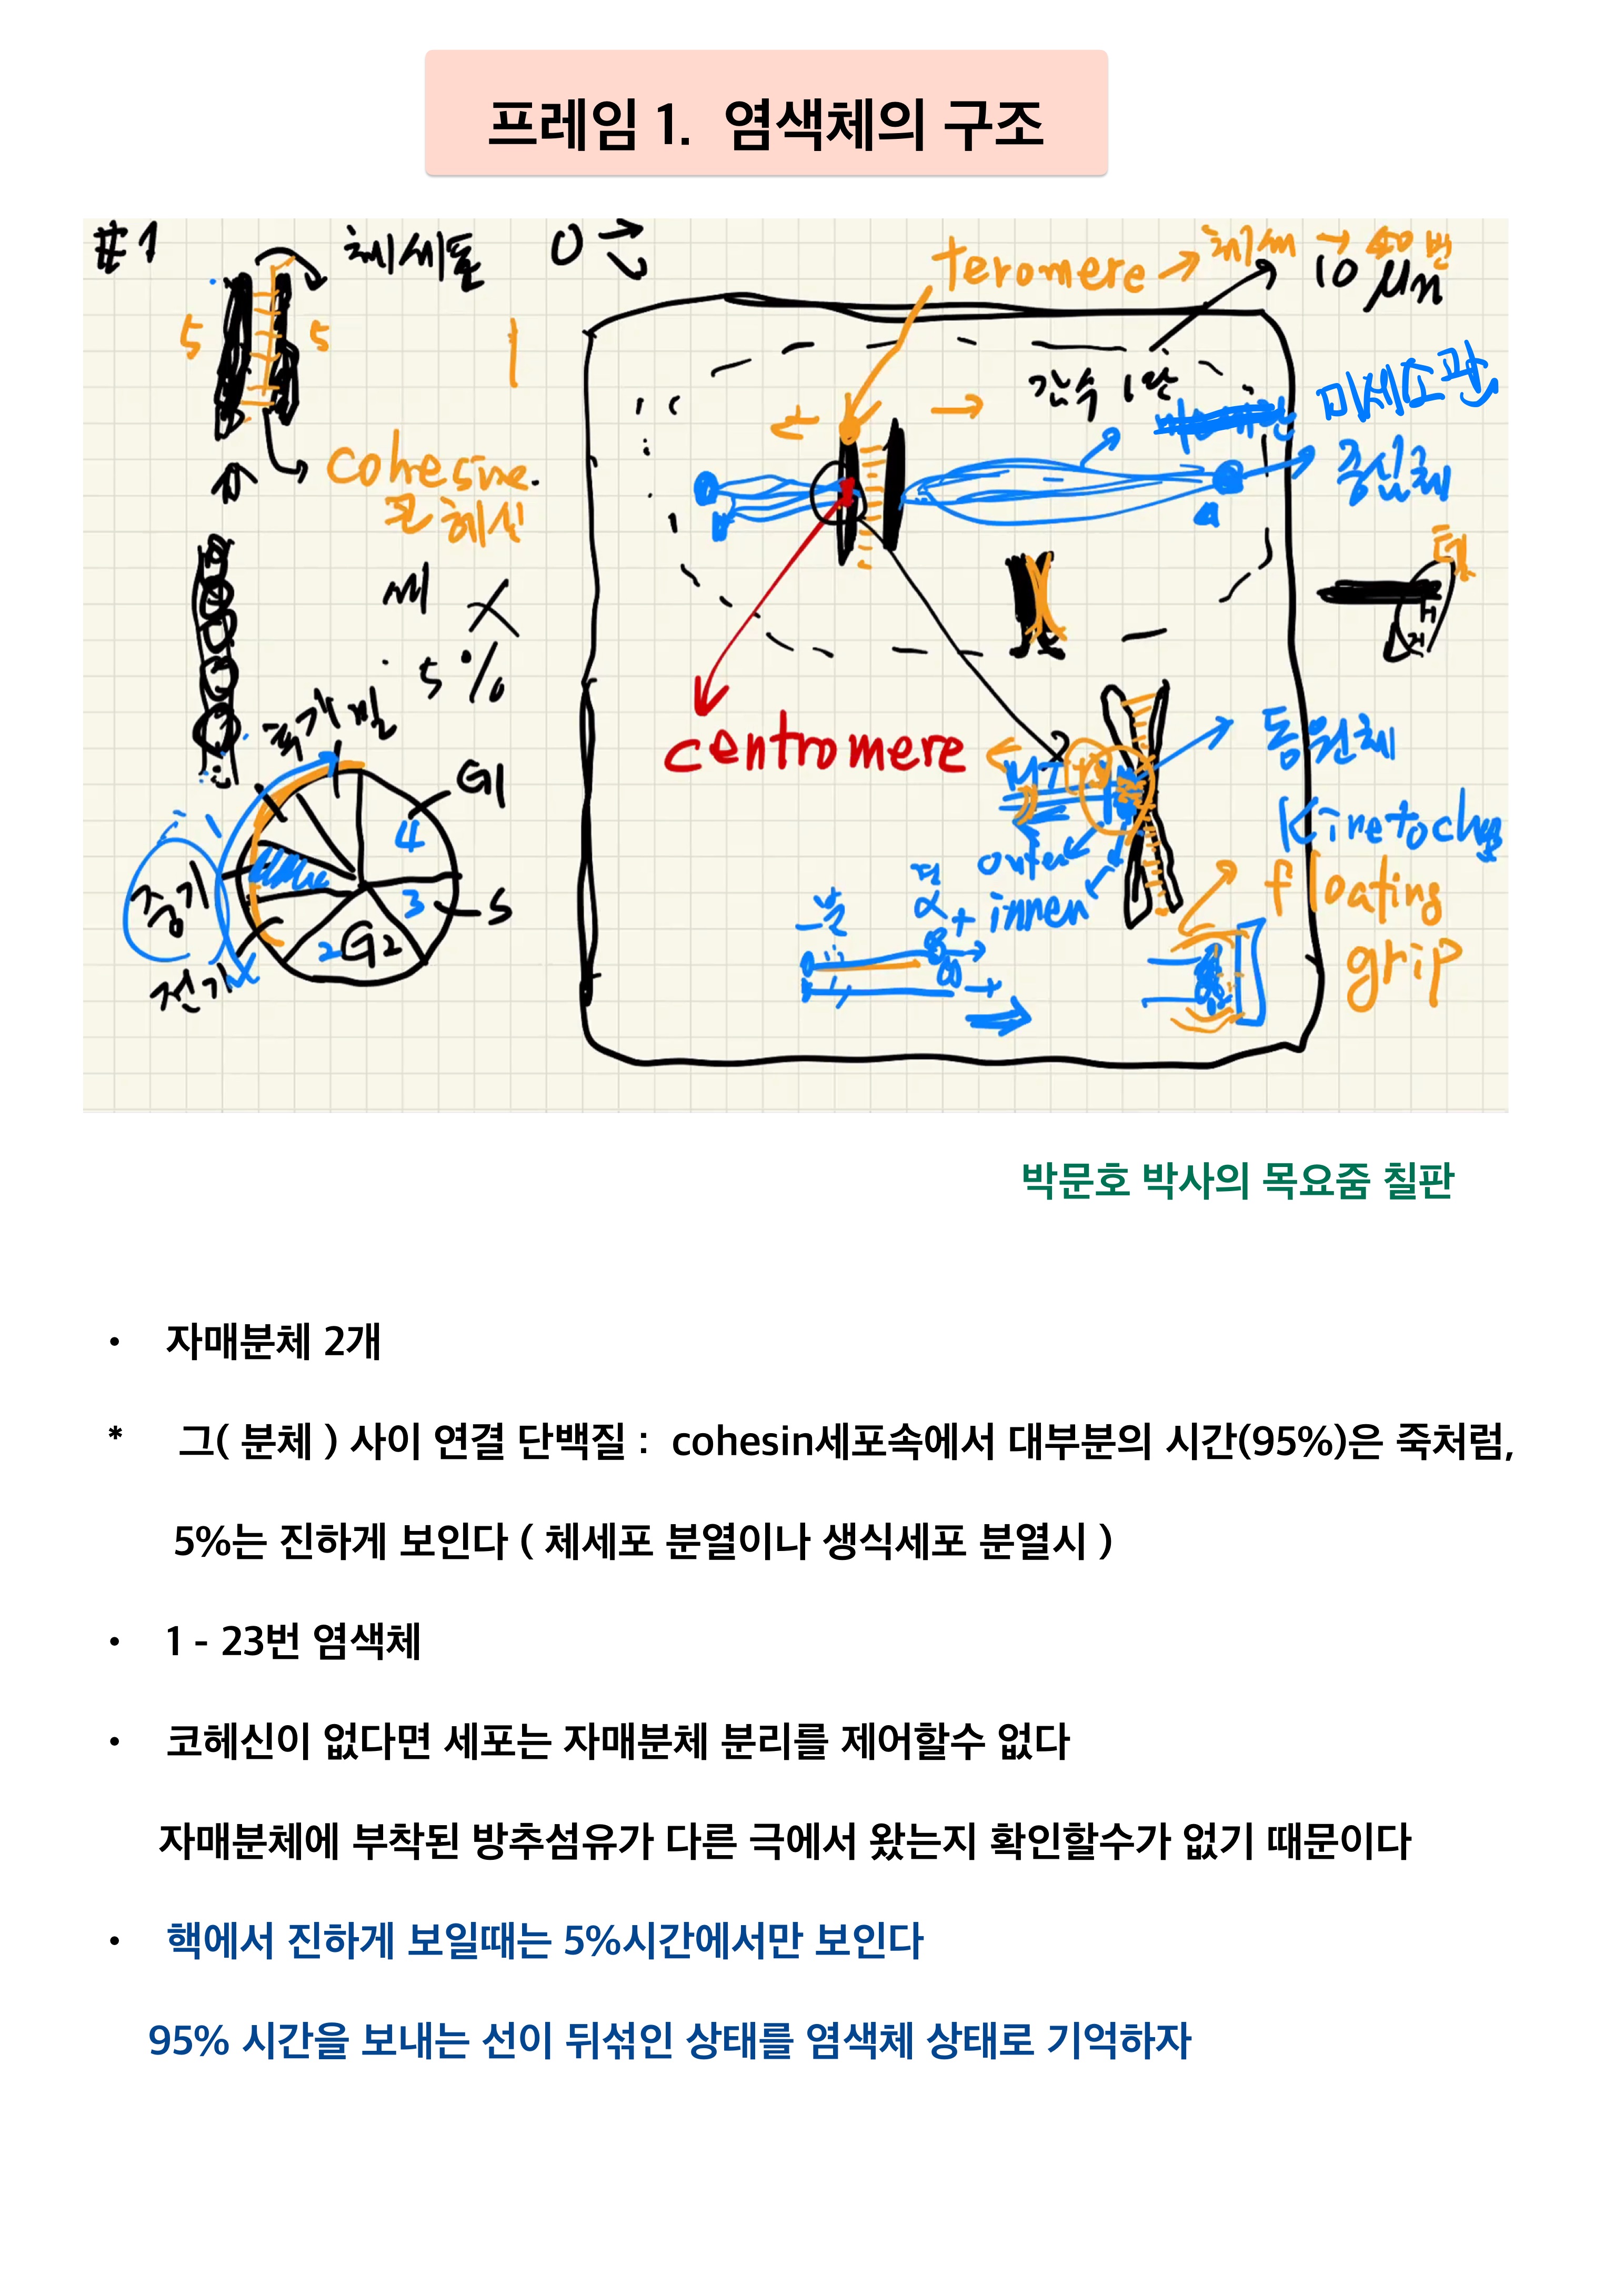 프레임 1. 염색체의 구조
#1
체세포
teromere
체세포 → 50번
10 μm
5
5
감수 1분
미세소관
중심체
cohesine
코헤신
5%
centromere
동원체
Kinetochore
MT
outer
inner
floating
grip
G1
4
3
S
2 G2
중기
전기
α
박문호 박사의 목요줌 칠판
• 자매분체 2개
* 그( 분체 ) 사이 연결 단백질 : cohesin세포속에서 대부분의 시간(95%)은 죽처럼,
5%는 진하게 보인다 ( 체세포 분열이나 생식세포 분열시 )
• 1 - 23번 염색체
• 코헤신이 없다면 세포는 자매분체 분리를 제어할수 없다
자매분체에 부착된 방추섬유가 다른 극에서 왔는지 확인할수가 없기 때문이다
• 핵에서 진하게 보일때는 5%시간에서만 보인다
95% 시간을 보내는 선이 뒤섞인 상태를 염색체 상태로 기억하자